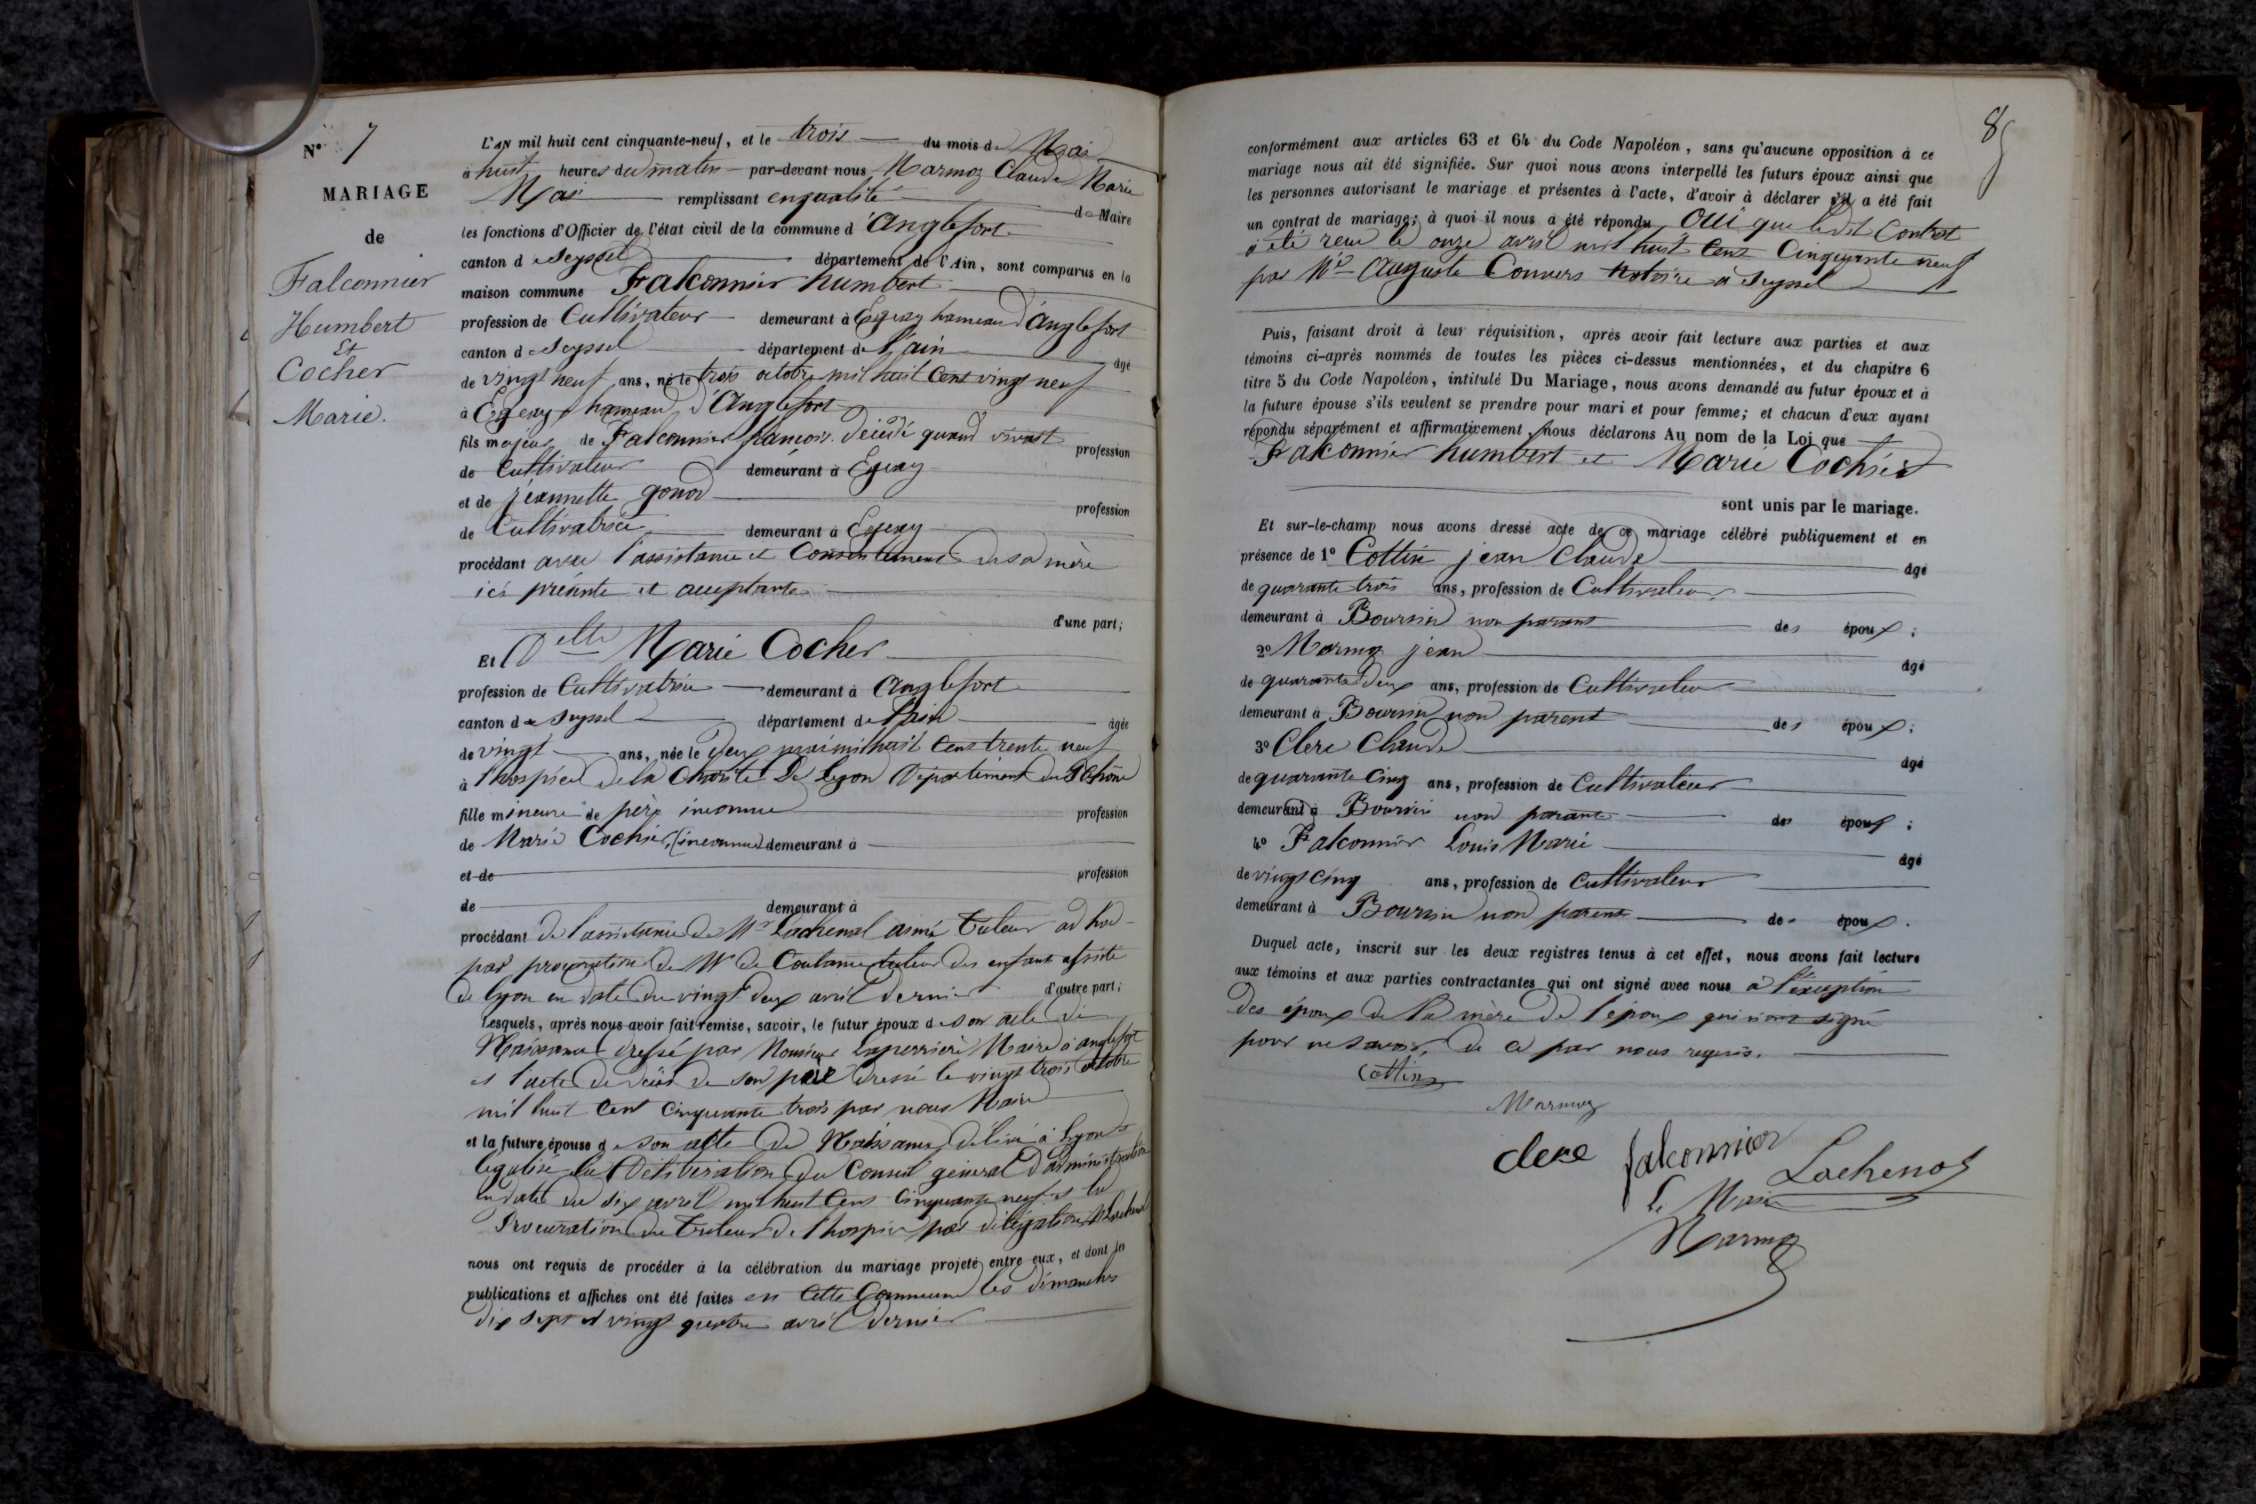 N° 7
MARIAGE
de
Falconnier
Humbert
Et
Cocher
Marie.
L'AN mil huit cent cinquante-neuf, et le trois du mois de Mai
à huit heures du matin par-devant nous Marmoz Claude Marie
Mai remplissant en qualité de Maire
les fonctions d'Officier de l'état civil de la commune d'Anglefort
canton de Seyssel département de l'Ain, sont comparus en la
maison commune Falconnier humbert
profession de Cultivateur demeurant à hameau d'Anglefort
canton de Seyssel département de l'ain âgé
de vingt neuf ans, né le trois octobre mil huit Cent vingt neuf
à hameau d'Anglefort
fils majeur de Falconnier françois décédé quand vivait profession
de Cultivateur demeurant à
et de jéannette gonod profession
de Cultivatrice demeurant à
procédant avec l'assistance et Consentement de sa mère
ici présente et acceptante
d'une part;
Et Delle Marie Cocher
profession de Cultivatrice demeurant à Anglefort
canton de Seyssel département de l'ain âgée
de vingt ans, née le deux mai mil huit Cent trente neuf
à l'hospice de la Charité De Lyon Département du Rhône
fille mineure de père inconnu profession
de Marie Cochier, (inconnue) demeurant à
et de profession
de demeurant à
procédant de l'assistance de Mr Lachenal aimé Tuteur ad hoc
par procuration de Mr de tuteur des enfants
de Lyon en date du vingt deux avril dernier d'autre part;
Lesquels, après nous avoir fait remise, savoir, le futur époux de son acte de
Naissance dressé par Monsieur Maire à anglefort
et l'acte de décès de son père dressé le vingt trois octobre
mil huit Cent Cinquante trois par nous Maire
et la future épouse de son acte de Naissance délivré à Lyon
légalisé la Délibération du Conseil général d'administration
en date du six avril mil huit Cent Cinquante neuf et la
Procuration du Tuteur de l'hospice par délégation
nous ont requis de procéder à la célébration du mariage projeté entre eux, et dont les
publications et affiches ont été faites en Cette Commune les dimanches
dix sept et vingt quatre avril dernier
85
conformément aux articles 63 et 64 du Code Napoléon, sans qu'aucune opposition à ce
mariage nous ait été signifiée. Sur quoi nous avons interpellé les futurs époux ainsi que
les personnes autorisant le mariage et présentes à l'acte, d'avoir à déclarer s'il a été fait
un contrat de mariage; à quoi il nous a été répondu OUI que ledit Contrat
a été reçu le onze avril mil huit Cent Cinquante neuf
par Me Auguste Convers notaire à Seyssel
Puis, faisant droit à leur réquisition, après avoir fait lecture aux parties et aux
témoins ci-après nommés de toutes les pièces ci-dessus mentionnées, et du chapitre 6
titre 5 du Code Napoléon, intitulé Du Mariage, nous avons demandé au futur époux et à
la future épouse s'ils veulent se prendre pour mari et pour femme; et chacun d'eux ayant
répondu séparément et affirmativement, nous déclarons Au nom de la Loi que
Falconnier humbert et Marie Cochier
sont unis par le mariage.
Et sur-le-champ nous avons dressé acte de ce mariage célébré publiquement et en
présence de 1° Cottin jean Claude âgé
de quarante trois ans, profession de Cultivateur
demeurant à Boursin non parent des époux;
2° Marmoz jean âgé
de quarante deux ans, profession de Cultivateur
demeurant à Boursin non parent des époux;
3° Clerc Claude âgé
de quarante Cinq ans, profession de Cultivateur
demeurant à Boursin non parent des époux;
4° Falconnier Louis Marie âgé
de vingt Cinq ans, profession de Cultivateur
demeurant à Boursin non parent des époux.
Duquel acte, inscrit sur les deux registres tenus à cet effet, nous avons fait lecture
aux témoins et aux parties contractantes qui ont signé avec nous à l'exception
des époux de la mère de l'époux qui n'ont signé
pour ne savoir, de ce par nous requis.
Cottin
Marmoz
clerc falconnier Lachenal
Le Maire
Marmoz